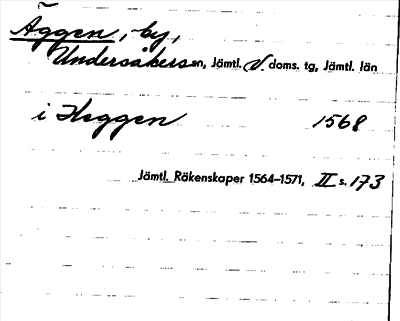 Äggen, by,
Undersåkers sn, Jämtl. V. doms. tg, Jämtl. län
i Heggen 1568
Jämtl. Räkenskaper 1564-1571, II s. 173